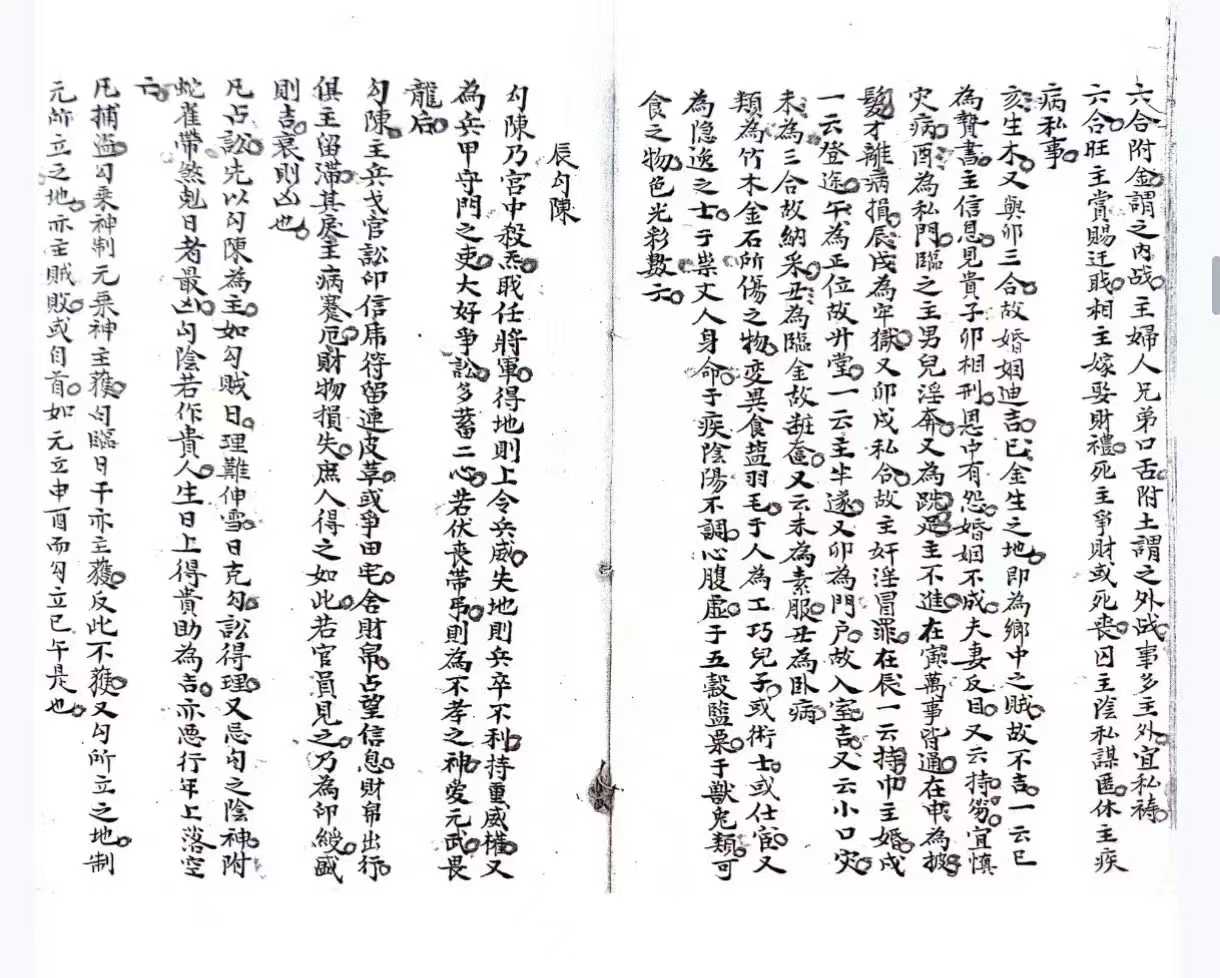 六合附金。謂之內战。主婦人兄弟口舌。附土謂之外战。事多主外。宜私祷。
六合旺主賞賜迁戝。相主嫁娶財禮。死主爭財或死丧。囚主陰私謀匿。休主疾
病私事。
亥生木。又與卯三合。故婚姻迪吉。巳金生之地。即為鄉中之賊。故不吉。一云巳
為贄書。主信息。見貴子卯相刑。恩中有怨。婚姻不成。夫妻反目。又云持芻。宜慎
灾病。酉為私門。臨之主男兒淫奔。又為跣足。主不進。在寅萬事皆通。在申為披
髮。才離病損。辰戌為牢獄。又卯戌私合。故主奸淫冒罪。在辰一云持巾主婚。戌
一云登途。午為正位故升堂。一云主半遂。又卯為門户。故入室吉。又云小口灾。
未為三合故納采。丑為臨金故粧奩。又云未為素服。丑為卧病。
類為竹木金石所傷之物。变異食盐羽毛。于人為工巧兒子。或術士。或仕宦。又
為隐逸之士。于祟丈人身命。于疾陰陽不調。心腹虛。于五穀監粟。于獸兔類。可
食之物。色光彩。數六。
辰勾陳
勾陳乃宮中殺炁。戝任將軍。得地則上令兵威。失地則兵卒不利。持重威權。又
為兵甲守門之吏。大好爭訟。多蓄二心。若伏丧帶吊。則為不孝之神。爱元武。畏
龍后。
勾陳主兵戈官訟印信席符留連皮草。或爭田宅。舍財帛。占望信息。財帛出行。
俱主留滞。其戾主病蹇厄。財物損失。庶人得之如此。若官員見之。乃為印綬。盛
則吉。衰則凶也。
凡占訟先以勾陳為主。如勾賊日。理難伸雪。日克勾。訟得理。又忌勾之陰神。附
蛇雀帶煞剋日者最凶。勾陰若作貴人。生日上得貴助為吉。亦忌行年上落空
亡。
凡捕盗。勾乘神制元乘神主獲。勾臨日干亦主獲。反此不獲。又勾所立之地。制
元所立之地。亦主賊敗。或自首。如元立申酉而勾立巳午是也。